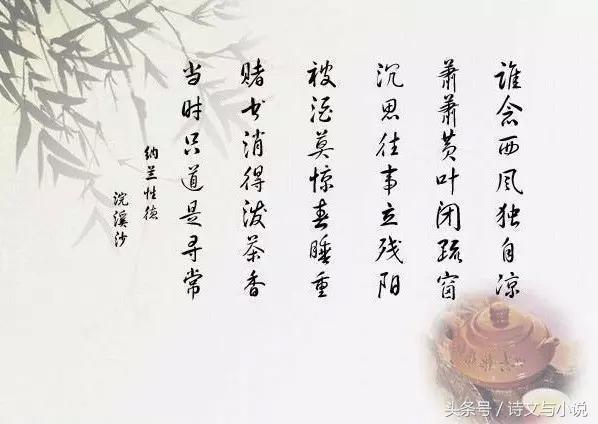 谁念西风独自凉
萧萧黄叶闭疏窗
沉思往事立残阳
被酒莫惊春睡重
赌书消得泼茶香
当时只道是寻常
纳兰性德
浣溪沙
头条号/诗文与小说